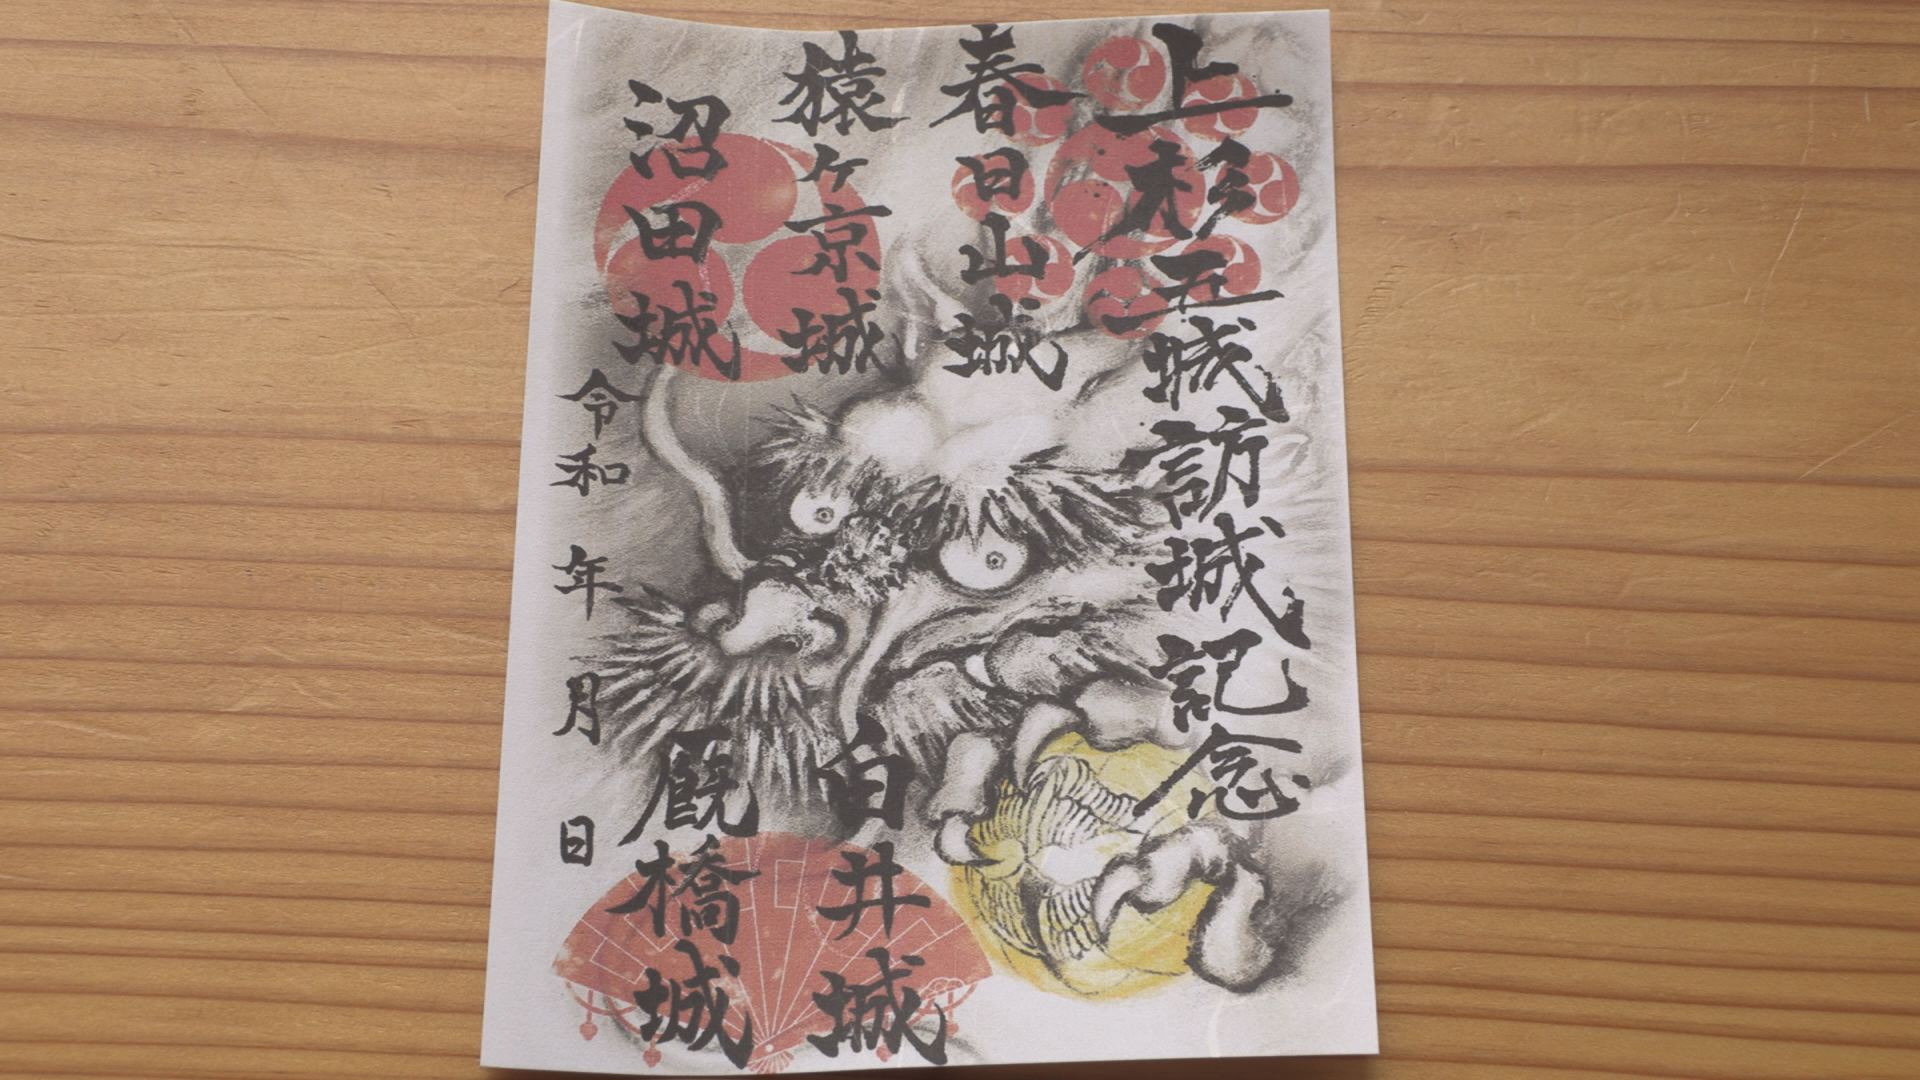 上杉五城訪城記念
春日山城
猿ヶ京城
沼田城
白井城
厩橋城
令和 年 月 日